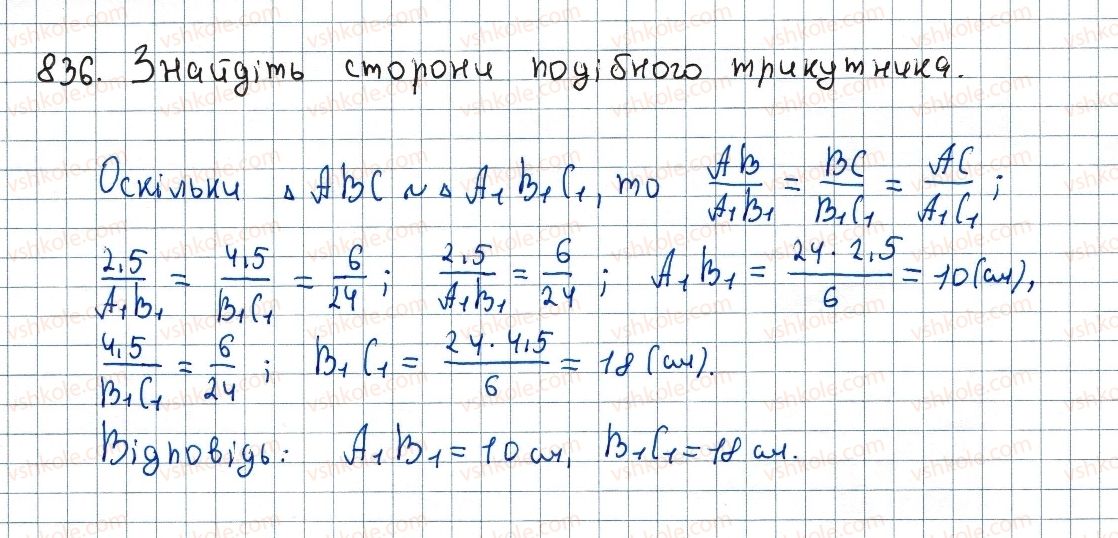 836. Знайдіть сторони подібного трикутника.
Оскільки △ ABC ~ △ A₁B₁C₁, то AB/A₁B₁ = BC/B₁C₁ = AC/A₁C₁;
2,5/A₁B₁ = 4,5/B₁C₁ = 6/24; 2,5/A₁B₁ = 6/24; A₁B₁ = 24·2,5/6 = 10 (см),
4,5/B₁C₁ = 6/24; B₁C₁ = 24·4,5/6 = 18 (см).
Відповідь: A₁B₁ = 10 см, B₁C₁ = 18 см.